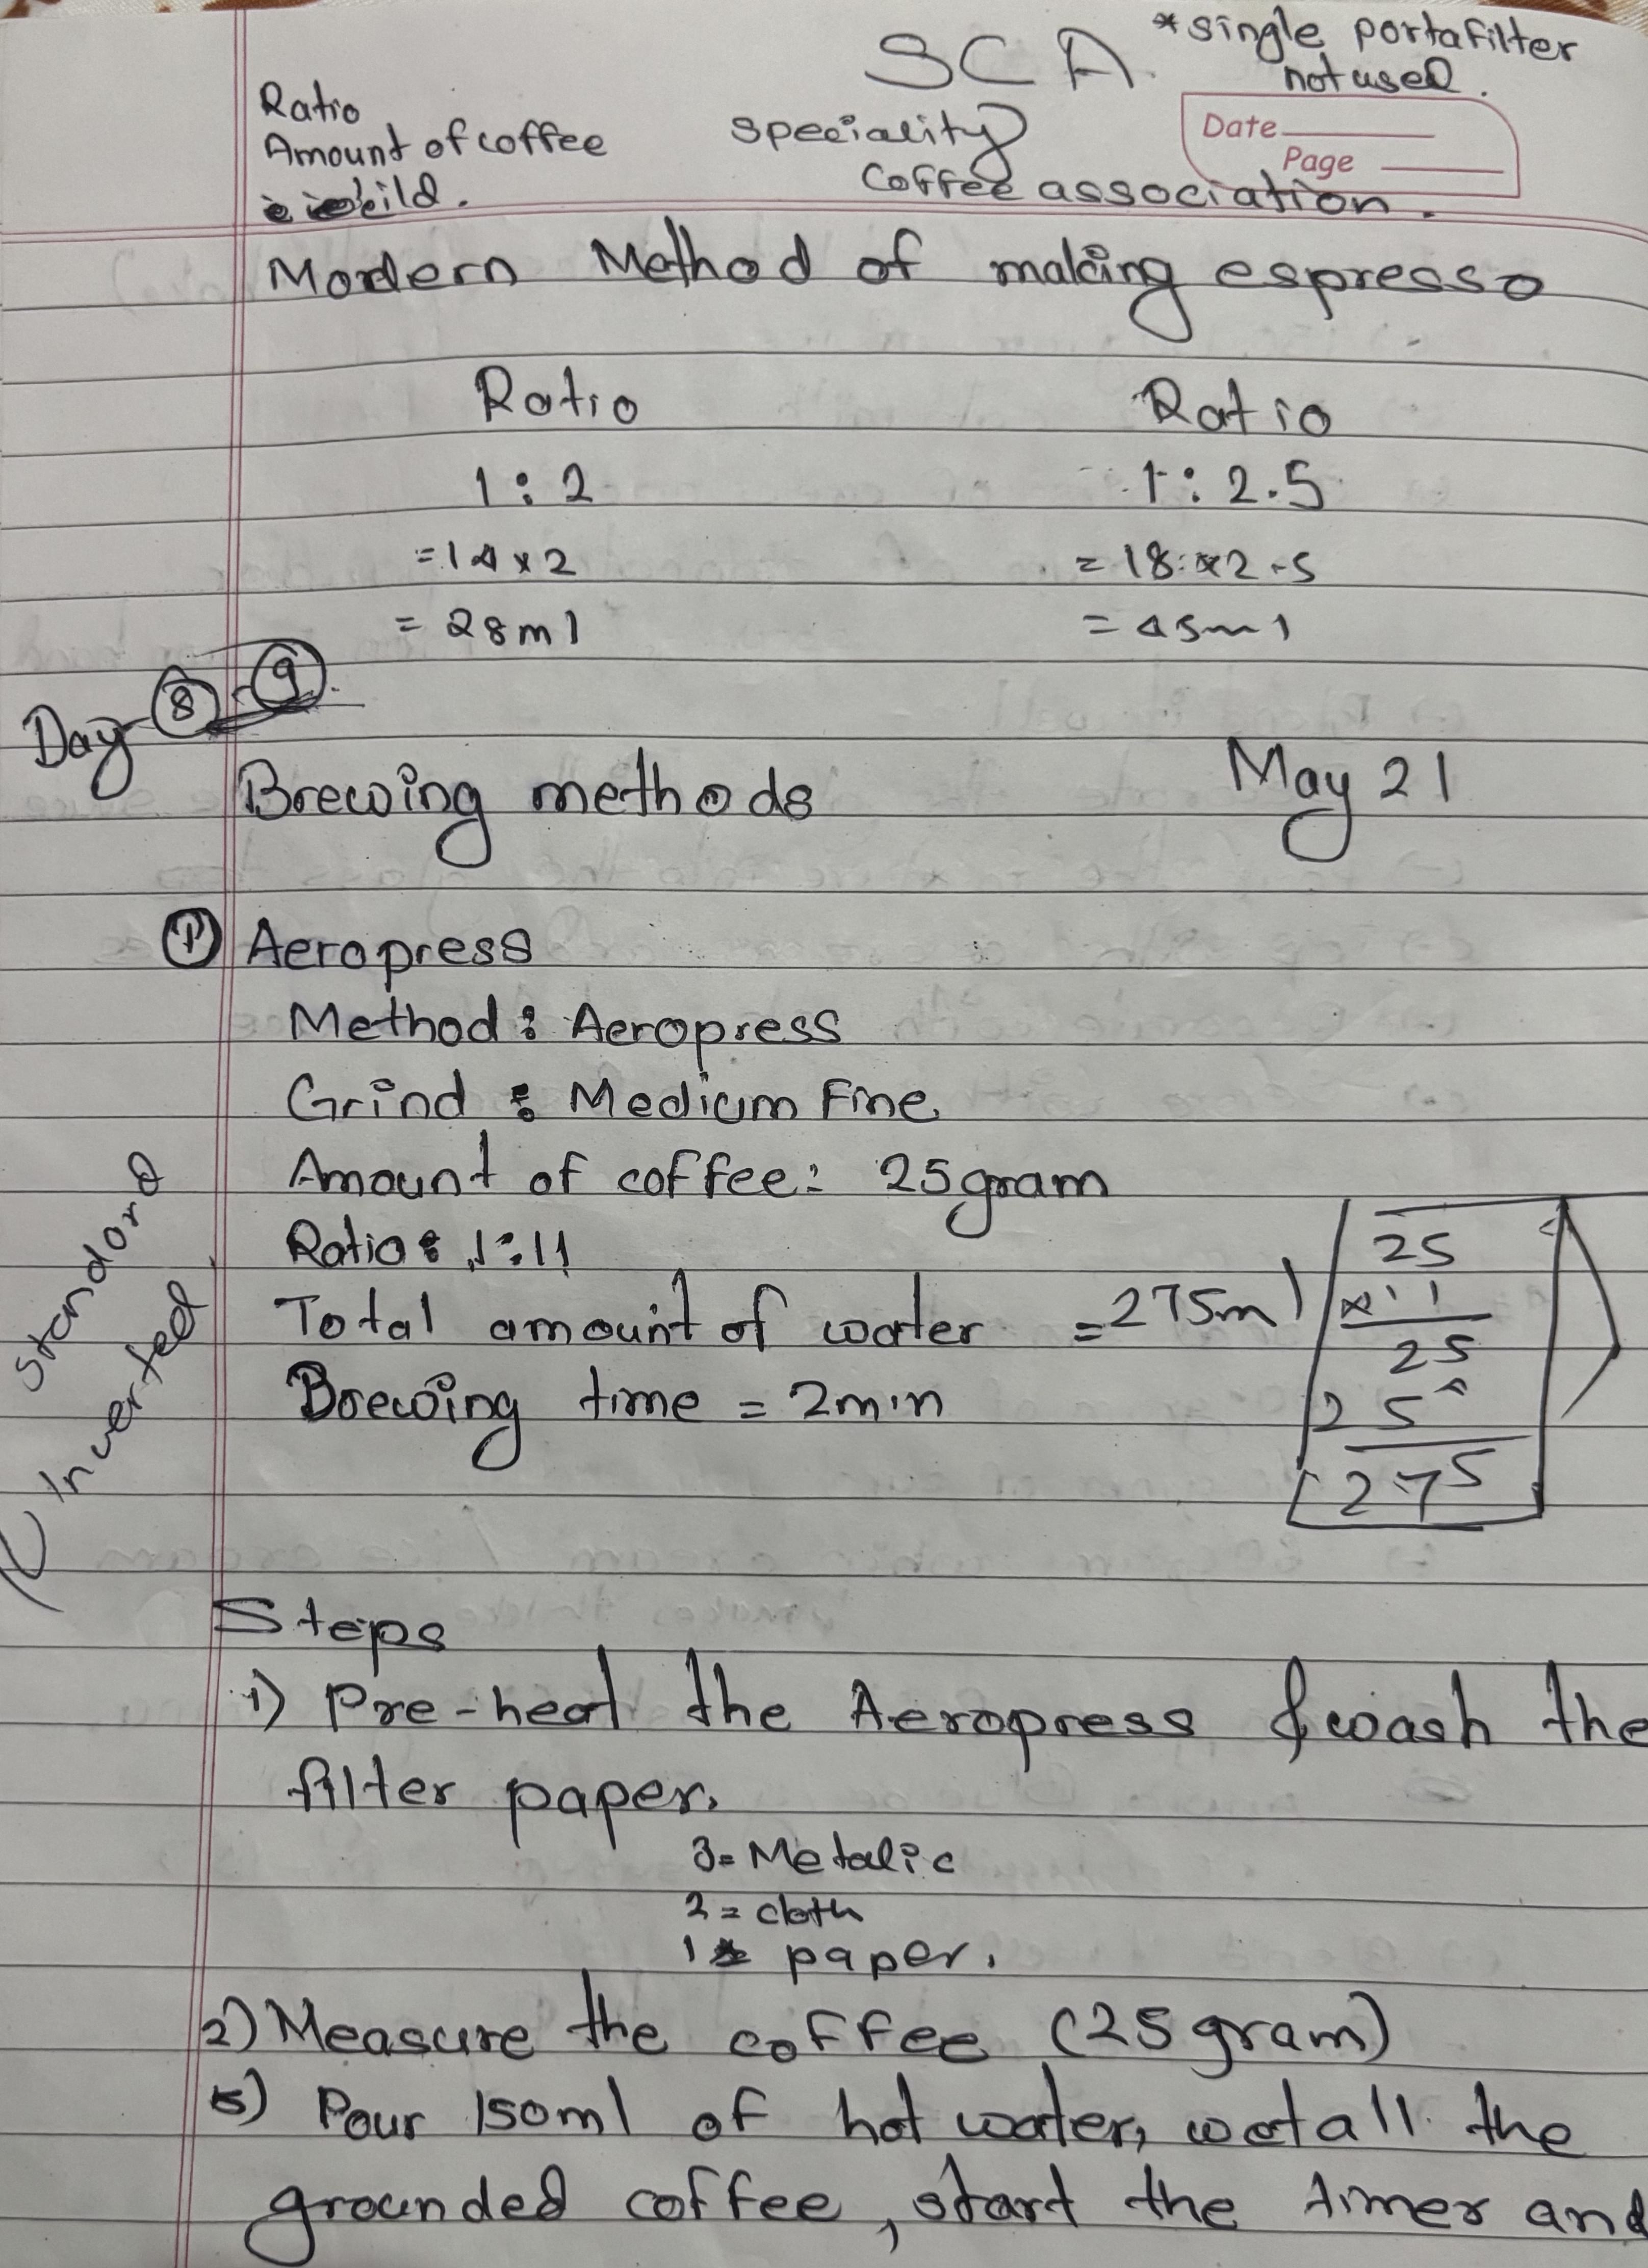 SCA
*single portafilter
not used.
Ratio
Amount of coffee
speciality
Date
Page
coffee association.
Modern Method of making espresso
Ratio Ratio
1:2 1:2.5
=14x2 =18x2.5
=28ml =45ml
Day 8-9
Brewing methods May 21
1 Aeropress
Method: Aeropress
Grind: Medium Fine
Amount of coffee: 25gram
Ratio: 1:11
Total amount of water =275ml
Brewing time = 2min
25
x11
25
25^
275
standard
Inverted
Steps
1) Pre-heat the Aeropress & wash the
filter paper.
3= Metalic
2= cloth
1= paper.
2) Measure the coffee (25gram)
Pour 150ml of hot water, wet all the
grounded coffee, start the timer and